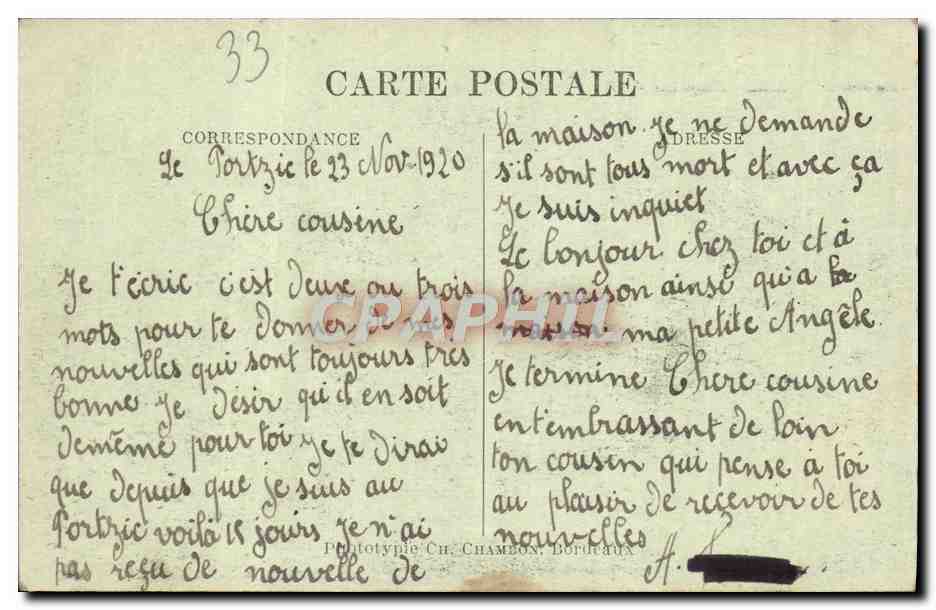 33
CARTE POSTALE
CORRESPONDANCE
Le Portzic le 23 Nov-1920
Chère cousine
Je t'écric c'est deux ou trois
mots pour te donner de mes
nouvelles qui sont toujours très
bonne Je désir qu'il en soit
demême pour toi Je te dirai
que depuis que je suis au
Portzic voilà 15 jours Je n'ai
pas reçu de nouvelle de
ADRESSE
la maison. Je ne demande
s'il sont tous mort et avec ça
Je suis inquiet
Le bonjour chez toi et à
la maison ainsé qu'a la
maison. ma petite Angèle.
Je termine Chère cousine
en t'embrassant de loin
ton cousin qui pense à toi
au plaisir de reçevoir de tes
nouvelles
A.
Phototypie CH. CHAMBON, Bordeaux
CPAPHIL